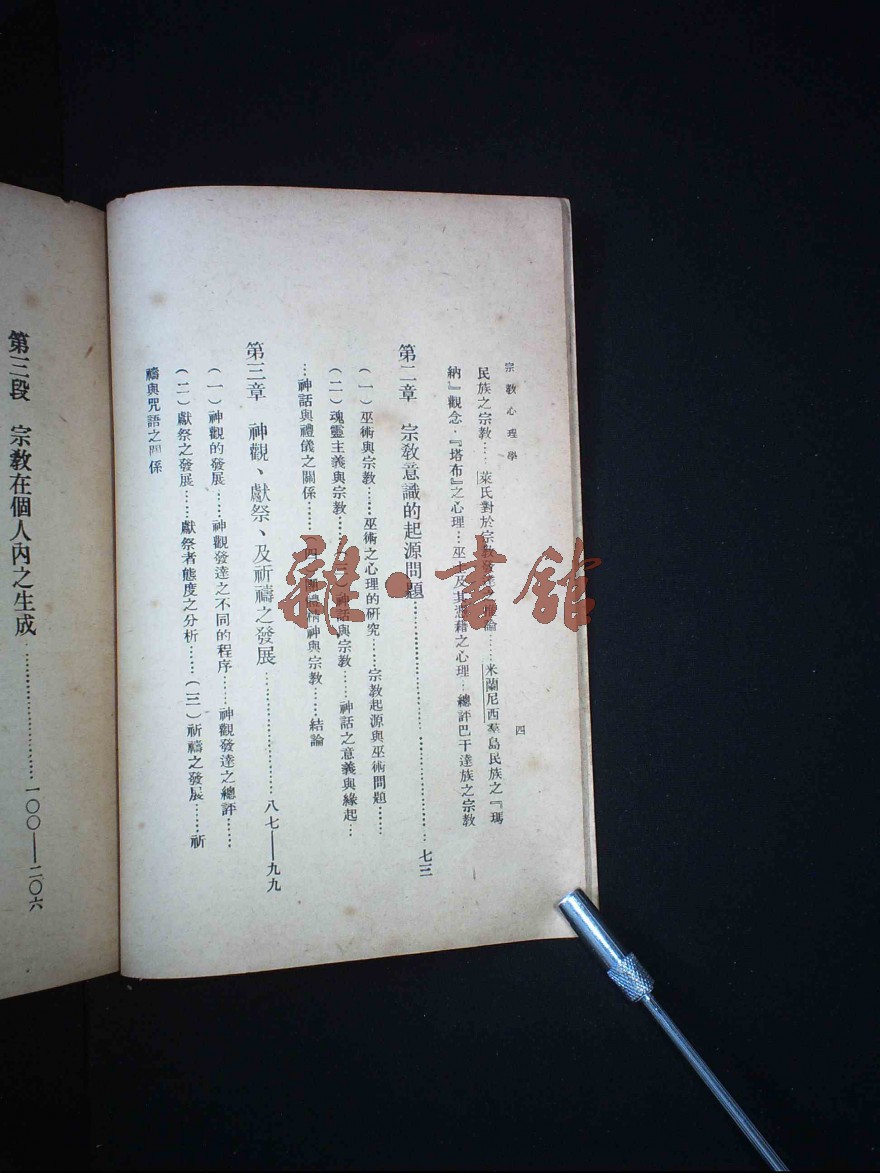 宗教心理學
四
民族之宗教……萊氏對於宗教發達之理論……米蘭尼西羣島民族之『瑪
納』觀念·『塔布』之心理…巫士及其憑藉之心理…總評巴干達族之宗教
第二章 宗教意識的起源問題……七三
(一)巫術與宗教……巫術之心理的研究……宗教起源與巫術問題……
(二)魂靈主義與宗教……(三)神話與宗教……神話之意義與緣起…
…神話與禮儀之關係……(四)團體精神與宗教……結論
第三章 神觀、獻祭、及祈禱之發展……八七—九九
(一)神觀的發展……神觀發達之不同的程序……神觀發達之總評……
(二)獻祭之發展……獻祭者態度之分析……(三)祈禱之發展……祈
禱與咒語之關係
第三段 宗教在個人內之生成……一〇〇—二〇六
雜·書館